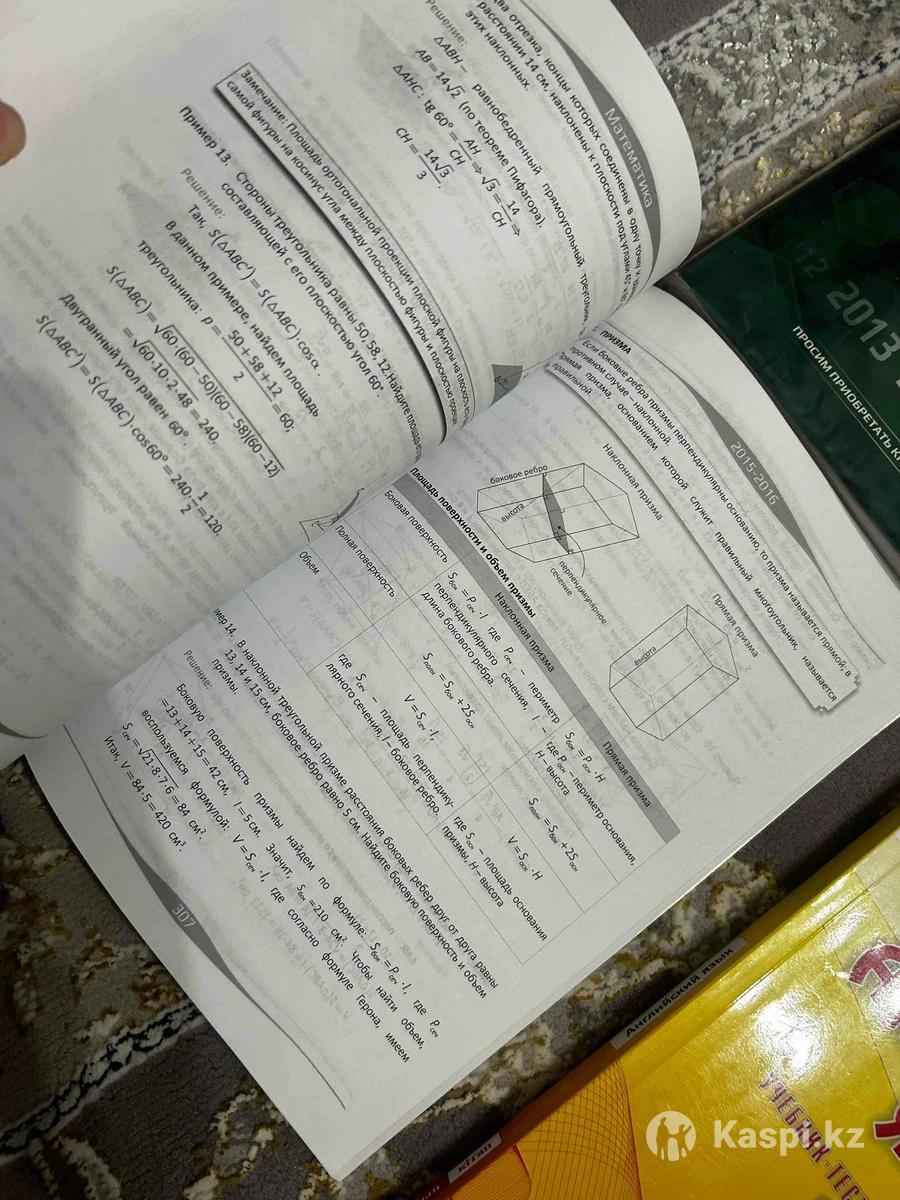 Математика
отрезка, концы которых соединены в одну
расстоянии 14 см, наклонены к плоскости под углами
этих наклонных.
Решение:
△ABH – равнобедренный прямоугольный
AB = 14√2 (по теореме Пифагора).
△AHC: tg 60° = AH/CH ⇒ √3 = 14/CH ⇒
CH = 14√3/3.
Замечание: Площадь ортогональной проекции плоской фигуры на плоскость
самой фигуры на косинус угла между плоскостью фигуры и плоскостью
Пример 13. Стороны треугольника равны 50, 58, 12. Найдите площадь
составляющей с его плоскостью угол 60°.
Решение:
Так, S(△ABC') = S(△ABC)·cosα.
В данном примере, найдем площадь
треугольника: p = (50 + 58 + 12)/2 = 60;
S(△ABC) = √60·(60 − 50)(60 − 58)(60 − 12)
= √60·10·2·48 = 240.
Двугранный угол равен 60°.
S(△ABC') = S(△ABC)·cos60° = 240·1/2 = 120.
2015-2016
ПРИЗМА
Если боковые ребра призмы перпендикулярны основанию, то призма называется прямой, в
противном случае наклонной.
Прямая призма, основанием которой служит правильный многоугольник, называется
правильной.
Наклонная призма
Прямая призма
боковое ребро
высота
перпендикулярное
сечение
высота
Площадь поверхности и объем призмы
Наклонная призма
Прямая призма
Боковая поверхность
Sбок = Pсеч · l где Pсеч – периметр
перпендикулярного сечения, l –
длина бокового ребра.
Sбок = Pосн · H
где Pосн – периметр основания,
H – высота
Полная поверхность
Sполн = Sбок + 2Sосн
Sполн = Sбок + 2Sосн
Объем
V = Sсеч · l,
где Sсеч – площадь перпендику-
лярного сечения, l – боковое ребро.
V = Sосн · H
где Sосн – площадь основания
призмы, H – высота
14. В наклонной треугольной призме расстояния боковых ребер друг от друга равны
13, 14 и 15 см, боковое ребро равно 5 см. Найдите боковую поверхность и объем
призмы.
Решение:
Боковую поверхность призмы найдем по формуле: Sбок = Pсеч · l, где Pсеч
= 13 + 14 + 15 = 42 см, l = 5 см. Значит, Sбок = 210 см². Чтобы найти объем,
воспользуемся формулой: V = Sсеч · l, где согласно формуле Герона, имеем
Sсеч = √21·8·7·6 = 84 см².
Итак, V = 84·5 = 420 см³.
307
2013
12
ПРОСИМ ПРИОБРЕТАТЬ
Английский язык
УЧЕБНИК-ТЕСТ
kitap
Kaspi.kz